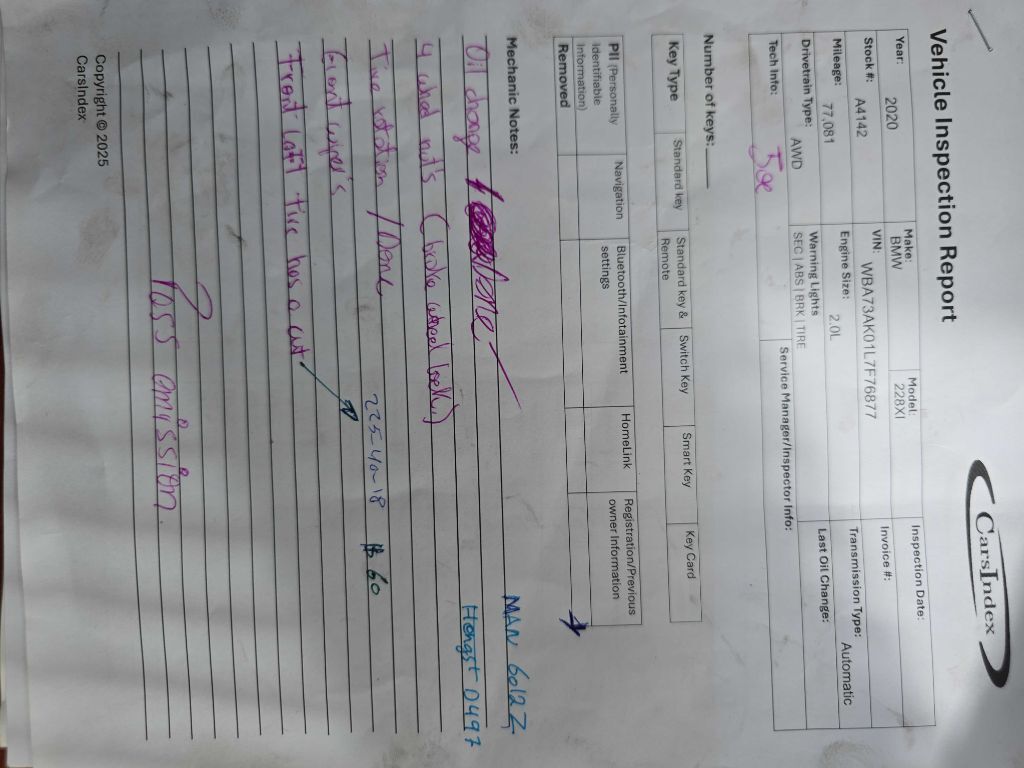 Vehicle Inspection Report
CarsIndex
Year: 2020
Make: BMW
Model: 228XI
Inspection Date:
Stock #: A4142
VIN: WBA73AK01L7F76877
Invoice #:
Mileage: 77,081
Engine Size: 2.0L
Transmission Type: Automatic
Drivetrain Type: AWD
Warning Lights
SEC | ABS | BRK | TIRE
Last Oil Change:
Tech Info: Joe
Service Manager/Inspector Info:
Number of keys:
Key Type
Standard key
Standard key & Remote
Switch Key
Smart Key
Key Card
PII (Personally Identifiable Information) Removed
Navigation
Bluetooth/Infotainment settings
HomeLink
Registration/Previous owner Information
Mechanic Notes:
MAN 6012Z
Oil change / Done
Hengst 0497
4 wheel nut's (broke wheel bolt)
Tire rotation / Done
225-40-18 $ 60
front wiper's
Front Left tire has a cut
Pass emission
Copyright © 2025
CarsIndex